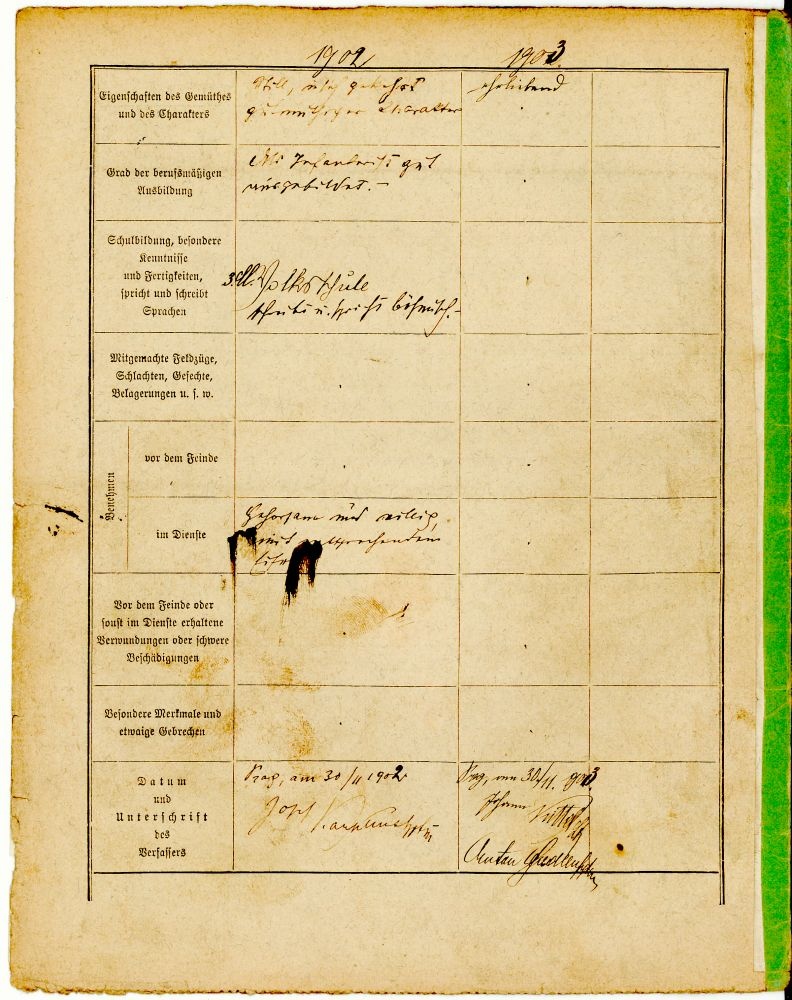 1902 1903.
Eigenschaften des Gemüthes
und des Charakters
Still, in sich gekehrt
gutmüthiger Charakter
ehrliebend
Grad der berufsmäßigen
Ausbildung
Als Infanterist gut
ausgebildet.-
Schulbildung, besondere
Kenntnisse
und Fertigkeiten,
spricht und schreibt
Sprachen
3. Cl. Volksschule
schreibt u. spricht böhmisch.-
Mitgemachte Feldzüge,
Schlachten, Gefechte,
Belagerungen u. s. w.
Benehmen
vor dem Feinde
im Dienste
Gehorsam und willig,
mit entsprechendem
Vor dem Feinde oder
sonst im Dienste erhaltene
Verwundungen oder schwere
Beschädigungen
Besondere Merkmale und
etwaige Gebrechen
Datum
und
Unterschrift
des
Verfassers
Prag, am 30/11 1902
Josef
Prag, am 30/11. 903
Johann
Anton